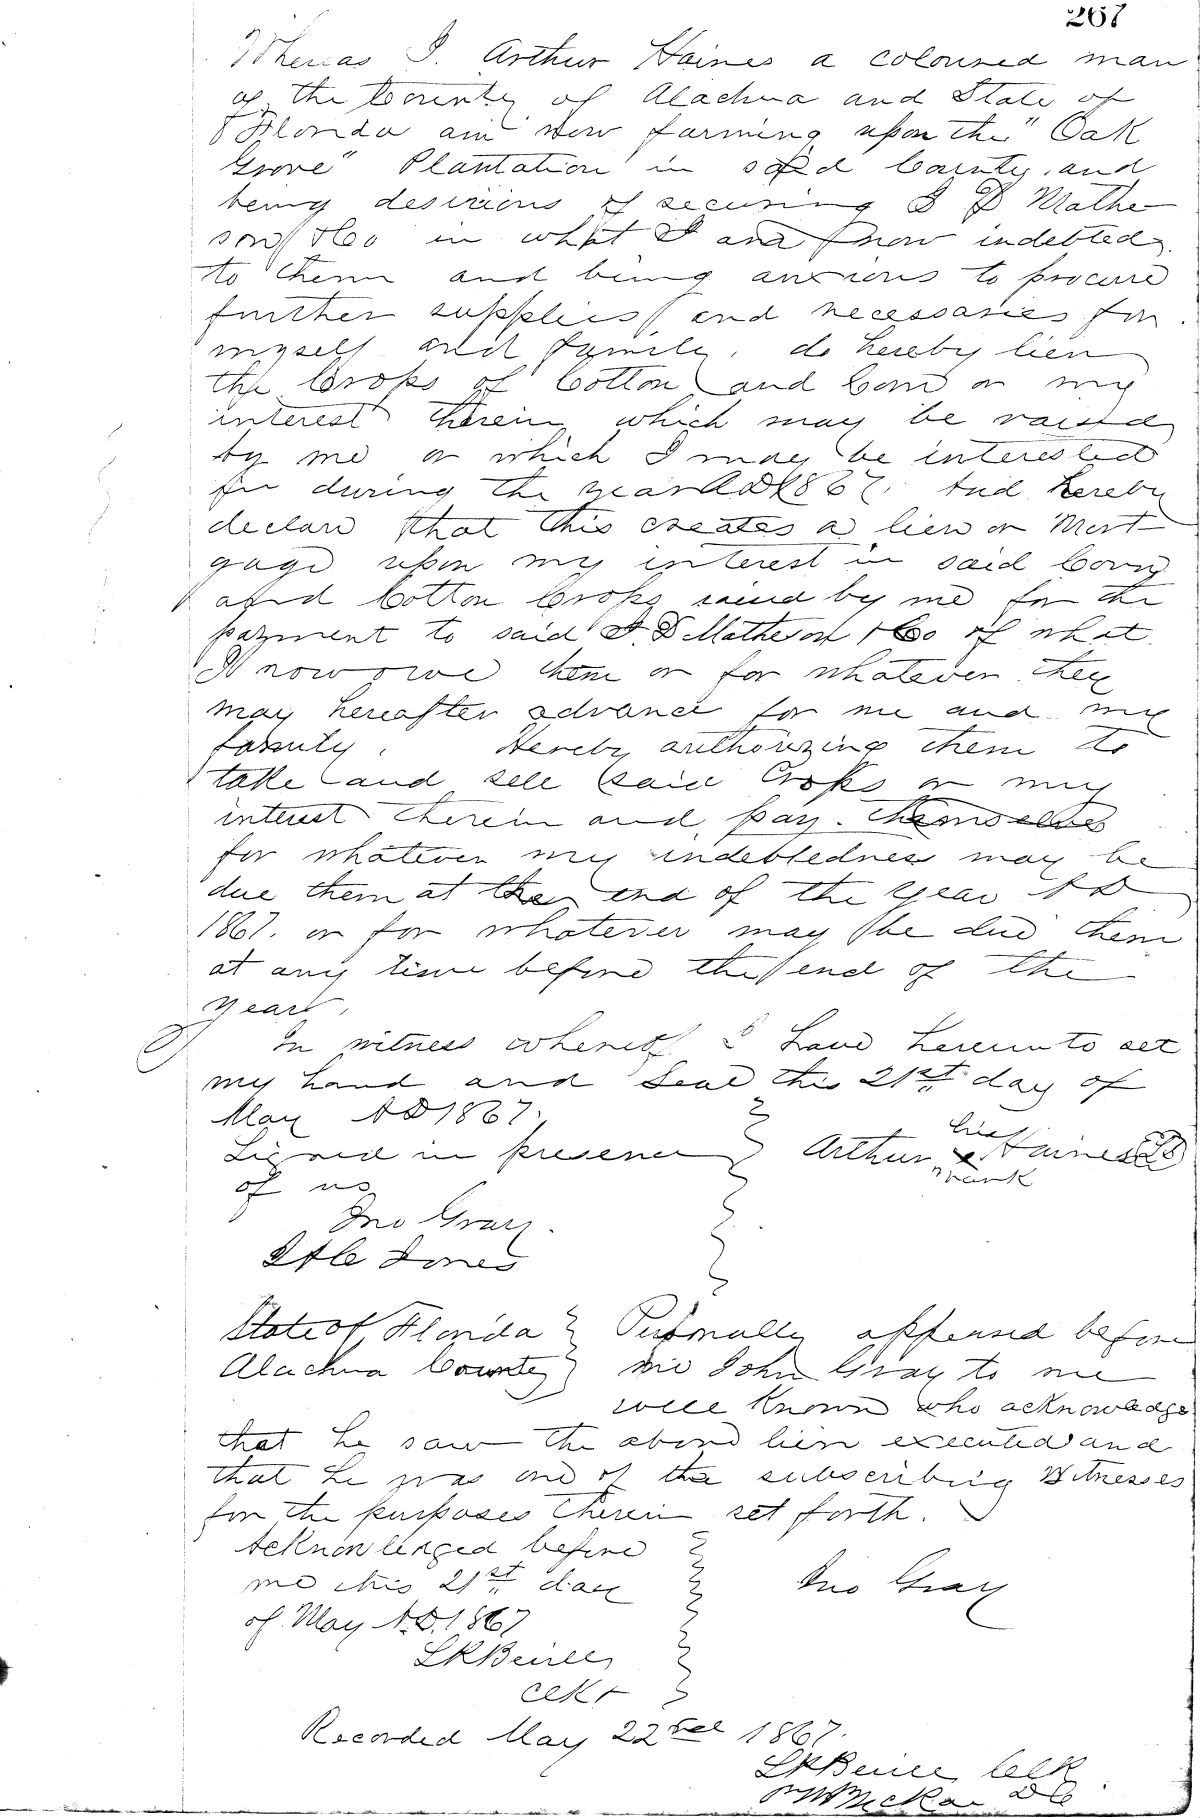 267
Whereas I Arthur Haines a coloured man
of the County of Alachua and State of
Florida am now farming upon the "Oak
Grove" Plantation in said County, and
being desirious of securing J D Mathe-
son & Co in what I am now indebted
to them and being anxious to procure
further supplies and necessaries for
myself and family, do hereby lien
the Crops of Cotton and Corn or my
interest therein which may be raised
by me or which I may be interested
in during the year AD 1867. And hereby
declare that this creates a lien or Mort-
gage upon my interest in said Corn
and Cotton Crops raised by me for the
payment to said J. D Matheson & Co of what
I now owe them or for whatever they
may hereafter advance for me and my
family. Hereby authorizing them to
take and sell said Crops or my
interest therein and pay themselves
for whatever my indebtedness may be
due them at the end of the year A D
1867. or for whatever may be due them
at any time before the end of the
year.
In witness whereof I have hereunto set
my hand and Seal this 21st day of
May AD 1867.
Signed in presence Arthur his x mark Haines LS
of us
Jno Gray.
Jones
State of Florida Personally appeared before
Alachua County me John Gray to me
well known who acknowledge
that he saw the above lien executed and
that he was one of the subscribing Witnesses
for the purposes therein set forth.
Acknowledged before
me this 21st day Jno Gray
of May A.D. 1867
Clk
Recorded May 22nd 1867.
Clk
DC